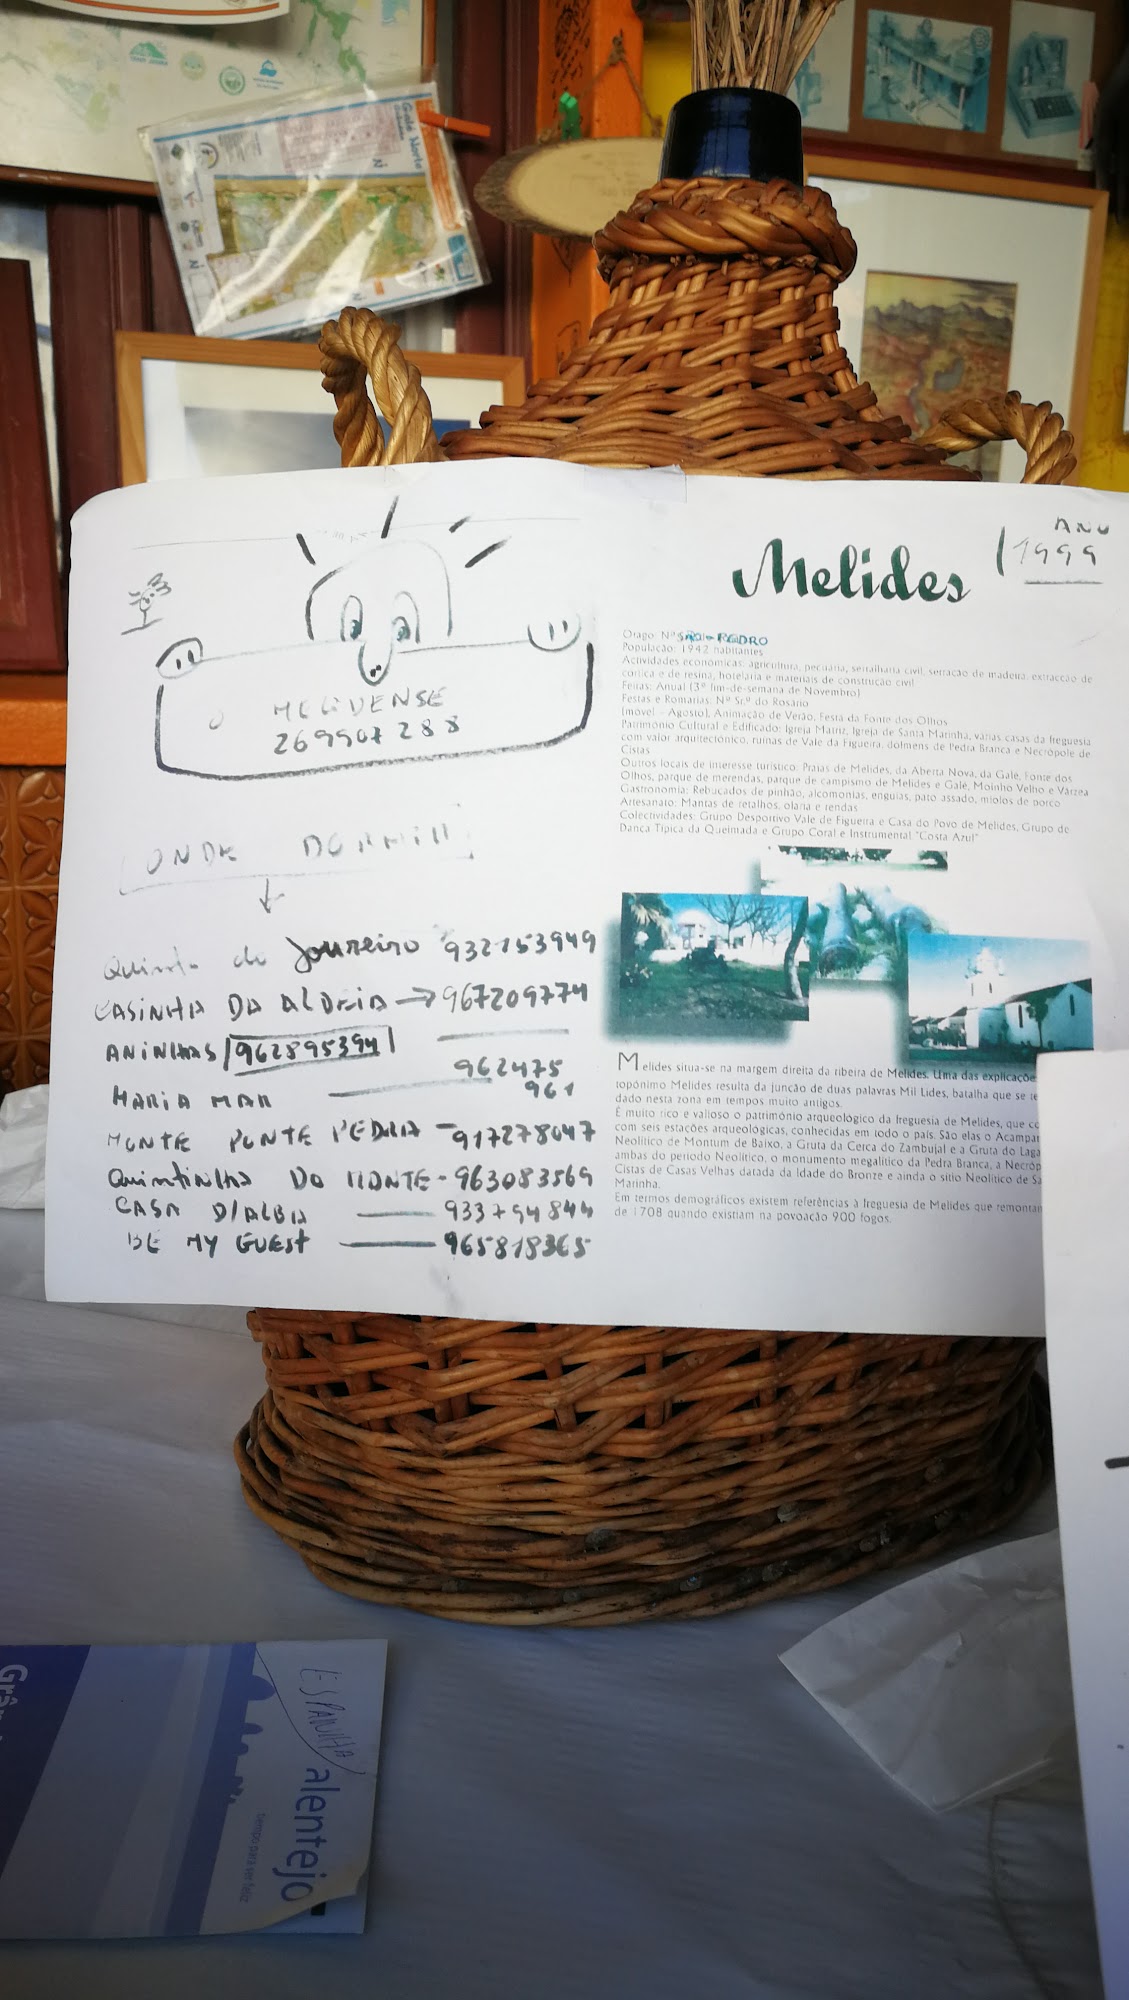 Galé Norte
MELIDENSE
269907288
ONDE DORMIR
Quinta do Loureiro 932153949
CASINHA DA ALDEIA → 967209774
ANINHAS 962895394
962475
961
MARIA MAR
MONTE PONTE PEDRA - 917278047
Quintinha DO MONTE - 963083569
CASA D/ALBA 933794844
BE MY GUEST 965818365
Melides
ANO
1999
Orago: Nª SÃO-PEDRO
População: 1942 habitantes
Actividades económicas: agricultura, pecuária, serralharia civil, serração de madeira, extracção de
cortiça e de resina, hotelaria e materiais de construção civil
Feiras: Anual (3º fim-de-semana de Novembro)
Festas e Romarias: Nª Srª do Rosário
(móvel - Agosto), Animação de Verão, Festa da Fonte dos Olhos
Património Cultural e Edificado: Igreja Matriz, Igreja de Santa Marinha, várias casas da freguesia
com valor arquitectónico, ruínas de Vale da Figueira, dolmens de Pedra Branca e Necrópole de
Cistas
Outros locais de interesse turístico: Praias de Melides, da Aberta Nova, da Galé, Fonte dos
Olhos, parque de merendas, parque de campismo de Melides e Galé, Moinho Velho e Várzea
Gastronomia: Rebuçados de pinhão, alcomonias, enguias, pato assado, miolos de porco
Artesanato: Mantas de retalhos, olaria e rendas
Colectividades: Grupo Desportivo Vale de Figueira e Casa do Povo de Melides, Grupo de
Dança Típica da Queimada e Grupo Coral e Instrumental "Costa Azul"
Melides situa-se na margem direita da ribeira de Melides. Uma das explicaçõe
topónimo Melides resulta da junção de duas palavras Mil Lides, batalha que se te
dado nesta zona em tempos muito antigos.
É muito rico e valioso o património arqueológico da freguesia de Melides, que co
com seis estações arqueológicas, conhecidas em todo o país. São elas o Acampar
Neolítico de Montum de Baixo, a Gruta da Cerca do Zambujal e a Gruta do Laga
ambas do período Neolítico, o monumento megalítico da Pedra Branca, a Necróp
Cistas de Casas Velhas datada da Idade do Bronze e ainda o sítio Neolítico de Sa
Marinha.
Em termos demográficos existem referências à freguesia de Melides que remontam
de 1708 quando existiam na povoação 900 fogos.
ESPANHA
alentejo
tempo para ser feliz
Grâ